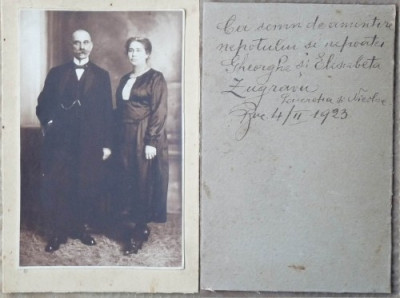 Ca semn de amintire
nepotului si nepoatei
Gheorghe si Elisabeta
Zugravu
Nicolae
4/II 1923